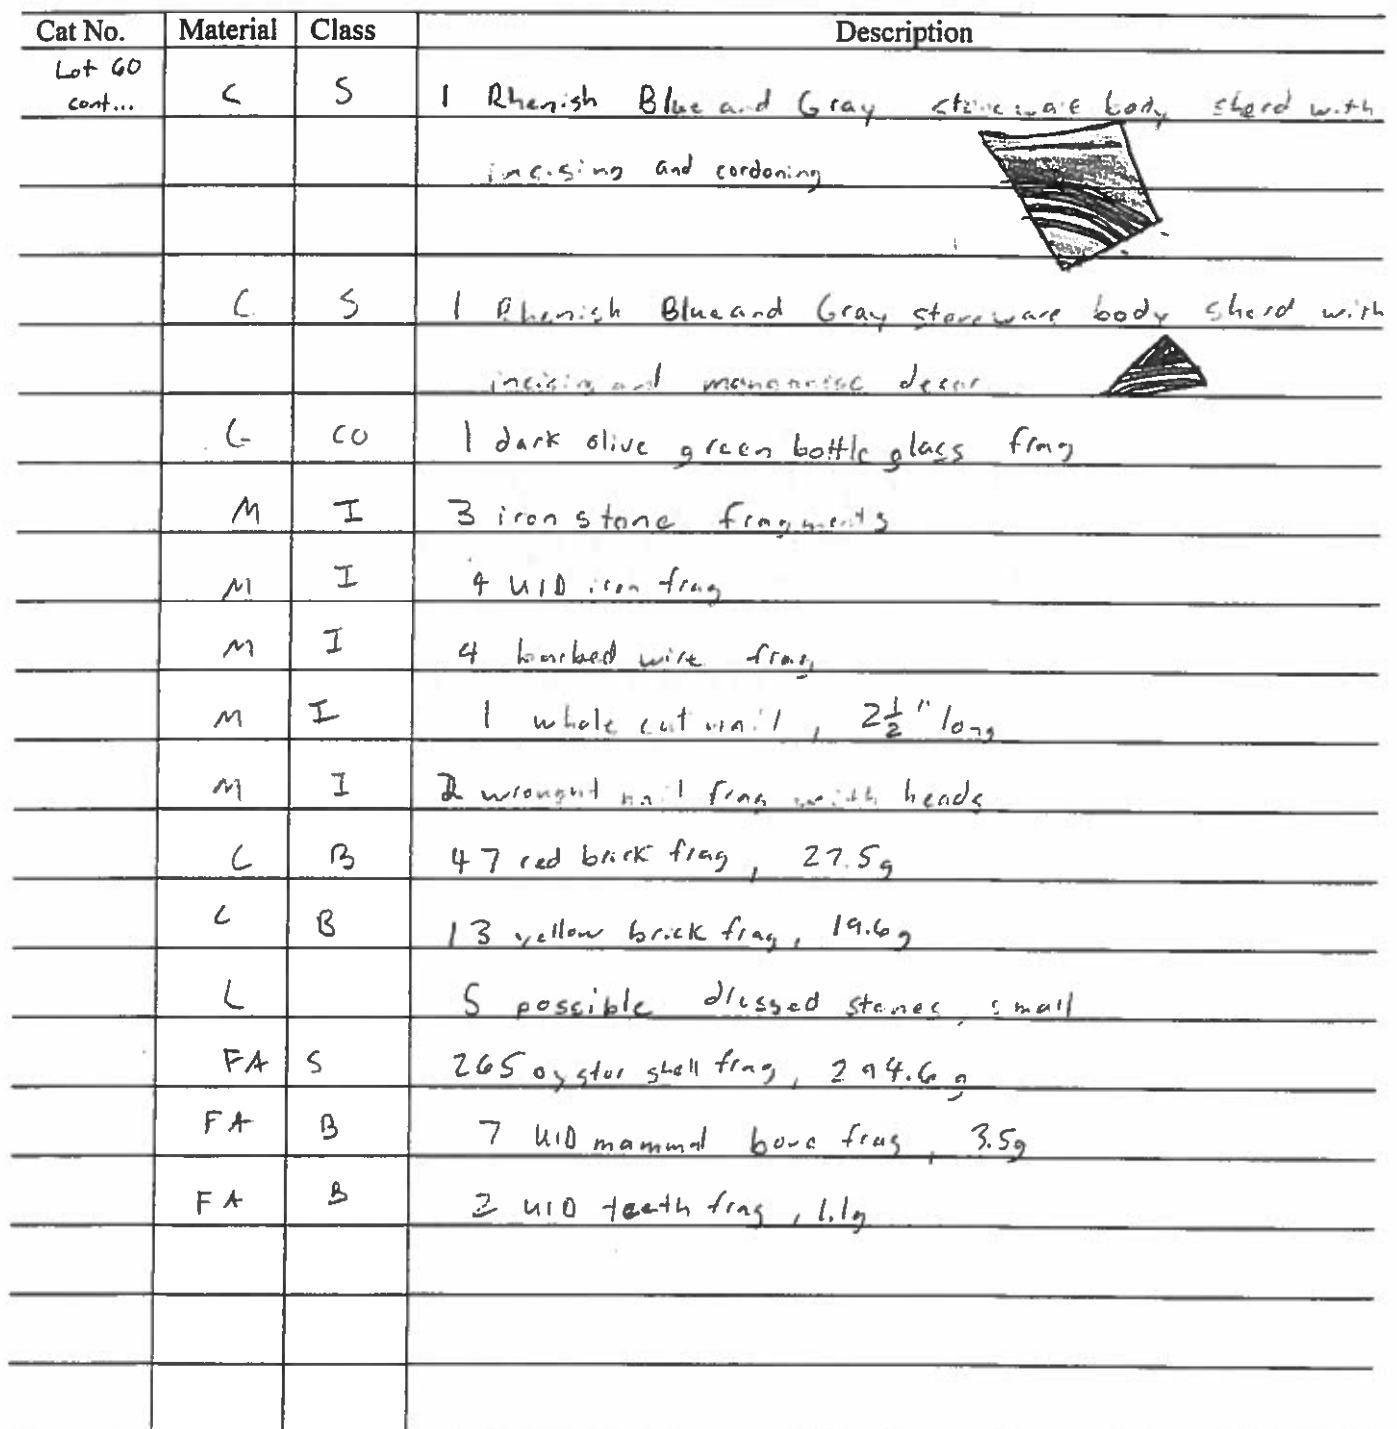 Cat No. Material Class Description
Lot 60
cont... C S 1 Rhenish Blue and Gray stoneware body sherd with
incising and cordoning
C S 1 Rhenish Blue and Gray stoneware body sherd with
incising and manganese decor
G CO 1 dark olive green bottle glass frag
M I 3 iron stone fragments
M I 4 UID iron frag
M I 4 barbed wire frag
M I 1 whole cut nail, 2 1/2" long
M I 2 wrought nail frag with heads
C B 47 red brick frag, 27.5g
C B 13 yellow brick frag, 19.6g
L 5 possible dressed stones, small
FA S 265 oyster shell frag, 294.6g
FA B 7 UID mammal bone frag, 3.5g
FA B 2 UID teeth frag, 1.1g